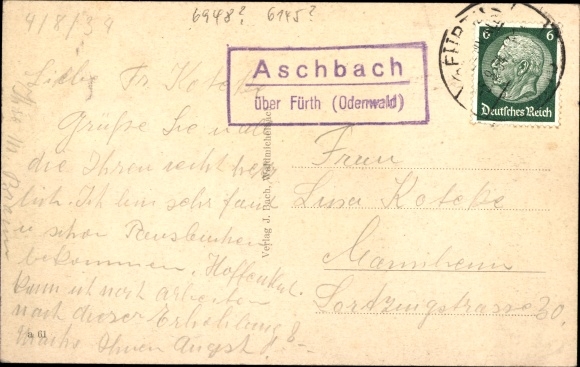 4/8/39
6948? 6145?
Aschbach
über Fürth (Odenwald)
6 6
Deutsches Reich
Grüße Sie und
die Ihren recht herz
lich. Ich bin sehr faul
u. schon
bekommen. Hoffentl.
kann ich noch arbeiten
nach dieser Erhohlung?
Ihnen Angst!
Verlag J. Bach,
Frau
Lusa Koteke
Mannheim
Lortzingstrasse 30.
a 61